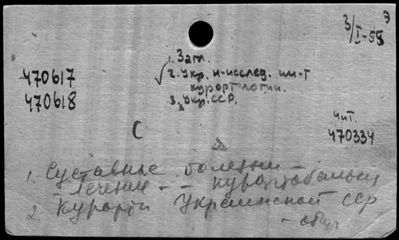 3/I-55 Э
1. Загл.
470617
2. Укр. н-исслед. ин-т
470618
курортологии.
3. Укр. ССР.
С
чит.
470334
1. Суставные болезни —
лечение - -
2. Курорты Украинской ССР
- общ